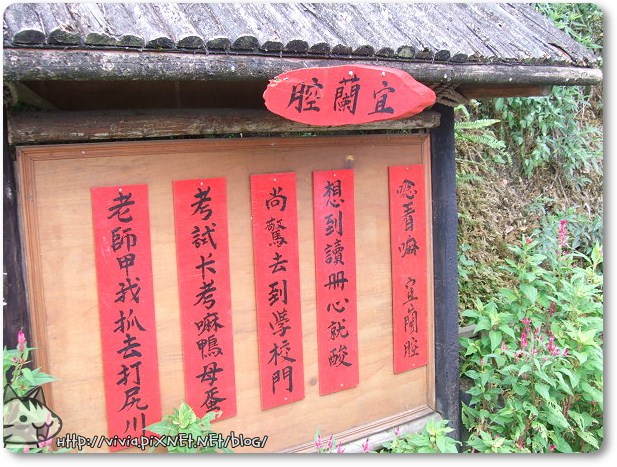 宜蘭腔
唸看嘛 宜蘭腔
想到讀冊心就酸
尚驚去到學校門
考試卡考嘛鴨母蛋
老師甲我抓去打尻川
http://vivia.pixNET.NET/blog/